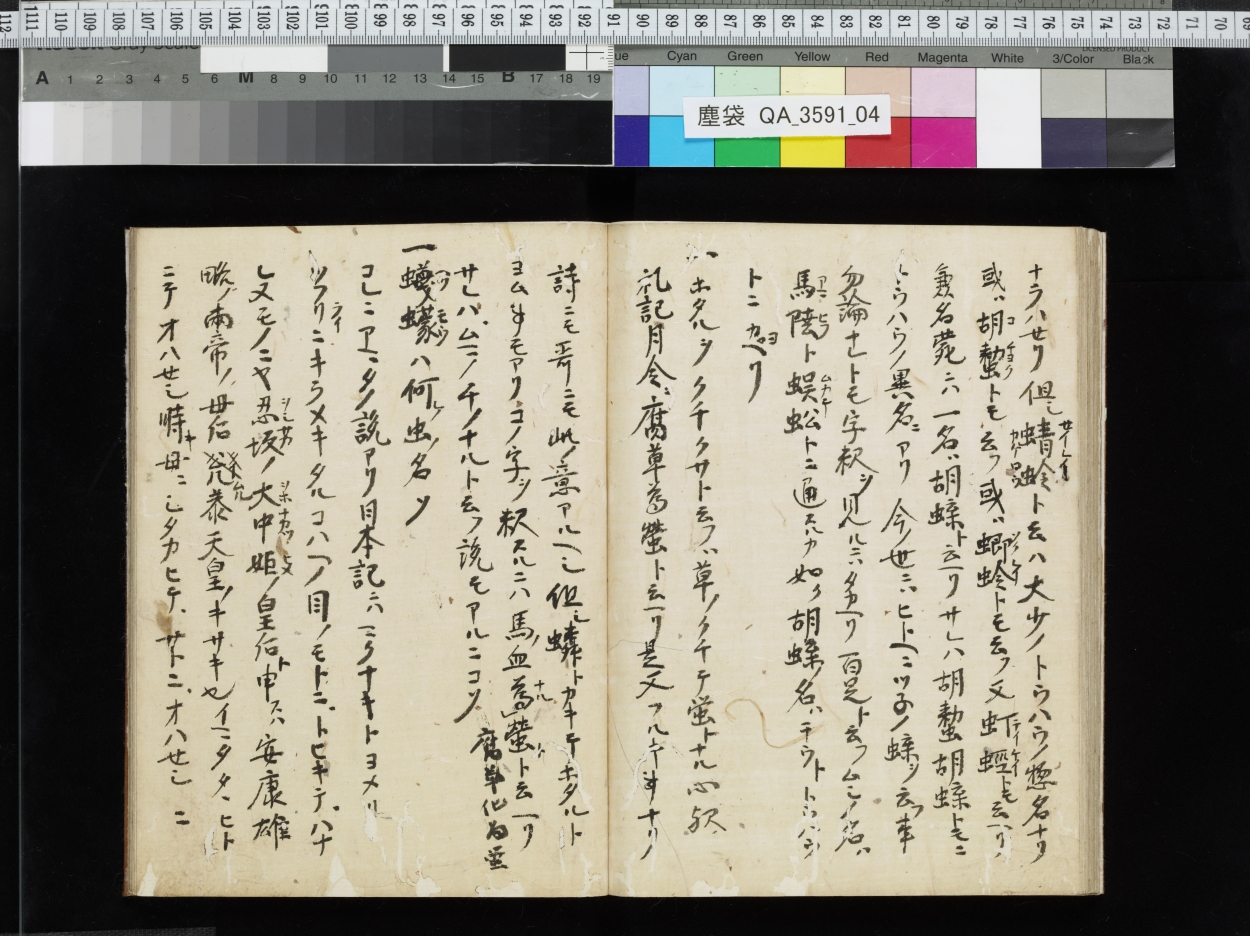 塵袋 QA_3591_04
ナラハセリ但シ蜻蛉ト云ハ大少ノトウハウノ惣名ナリ
或ハ胡蝥トモ云フ或ハ蝍蛉トモ云フ又虰蛵トモ云ヘリ
一名ハ胡蝶ト云ヘリサレハ胡蝥胡蝶トモニ
トウハウノ異名ニアリ今ノ世ニハヒトヘニツ子ノ蝶ヲ云フ事
勿論ナレトモ字釈ヲ見ルニハ多ヘリ百足ト云フムシノ名ハ
馬陸ト蜈蚣トニ通スルカ如ク胡蝶ノ名ハテウトトウハウ
トニカヨヘリ
一ホタルヲクチクサト云フハ草ノクチテ螢トナル心歟
礼記月令ニ腐草為螢ト云ヘリ是又フルキ事ナリ
詩ニモ哥ニモ此ノ意アルヘシ但シ蟒トカキテホタルト
ヨム事モアリコノ字ヲ釈スルニハ馬ノ血為螢ト云ヘリ
サレハムマノチノナルト云フ説モアルニコソ 腐草化為螢
一蠛蠓ハ何虫ノ名ソ
コレニアマタノ説アリ日本記ニハマクナキトヨメリ
ツラリニキラメキタルコハヘノ目ノモトニトヒキテハナ
レ又モノニヤ忍坂ノ大中姫ノ皇后ト申スハ安康雄
略ノ両帝ノ母后允恭天皇ノキサキ也イマタタヽヒト
ニテオハセシ時母ニシタカヒテサトニオハセシニ
A 1 2 3 4 5 6 M 8 9 10 11 12 13 14 15 B 17 18 19
Cyan Green Yellow Red Magenta White 3/Color Black